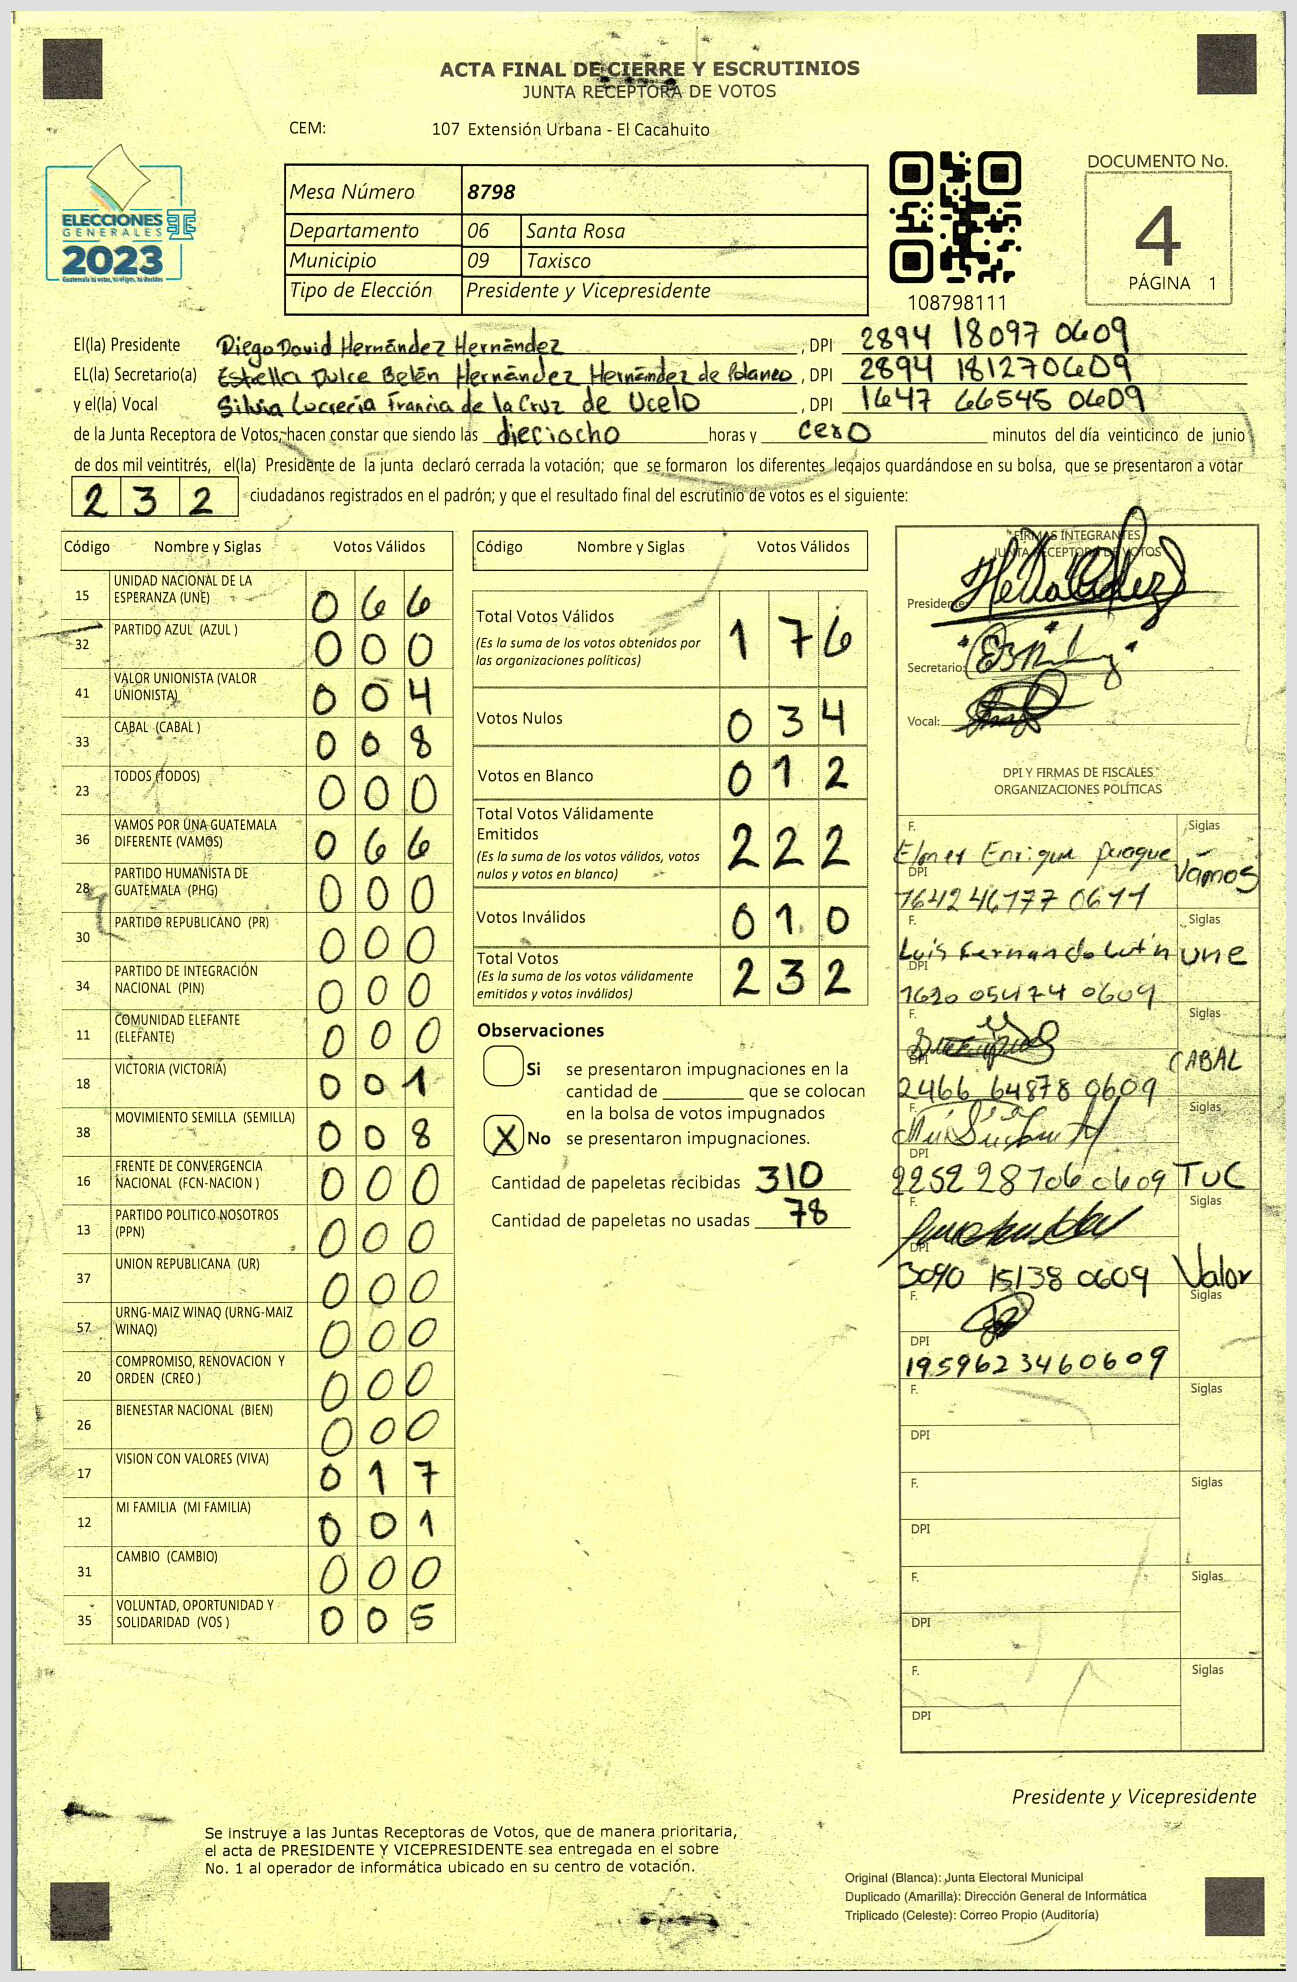 ACTA FINAL DE CIERRE Y ESCRUTINIOS
JUNTA RECEPTORA DE VOTOS
CEM: 107 Extensión Urbana - El Cacahuito
ELECCIONES
GENERALES
2023
Mesa Número 8798
Departamento 06 Santa Rosa
Municipio 09 Taxisco
Tipo de Elección Presidente y Vicepresidente
108798111
DOCUMENTO No.
4
PÁGINA 1
El(la) Presidente Diego David Hernández Hernández , DPI 2894 18097 0609
EL(la) Secretario(a) Estrella Dulce Belén Hernández Hernández de Polanco , DPI 2894 18127 0609
y el(la) Vocal Silvia Lucrecia Francia de la Cruz de Ucelo , DPI 1647 66545 0609
de la Junta Receptora de Votos, hacen constar que siendo las dieciocho horas y cero minutos del día veinticinco de junio
de dos mil veintitrés, el(la) Presidente de la junta declaró cerrada la votación; que se formaron los diferentes legajos guardándose en su bolsa, que se presentaron a votar
232 ciudadanos registrados en el padrón; y que el resultado final del escrutinio de votos es el siguiente:
Código Nombre y Siglas Votos Válidos
15 UNIDAD NACIONAL DE LA ESPERANZA (UNE) 066
32 PARTIDO AZUL (AZUL ) 000
41 VALOR UNIONISTA (VALOR UNIONISTA) 004
33 CABAL (CABAL ) 008
23 TODOS (TODOS) 000
36 VAMOS POR UNA GUATEMALA DIFERENTE (VAMOS) 066
28 PARTIDO HUMANISTA DE GUATEMALA (PHG) 000
30 PARTIDO REPUBLICANO (PR) 000
34 PARTIDO DE INTEGRACIÓN NACIONAL (PIN) 000
11 COMUNIDAD ELEFANTE (ELEFANTE) 000
18 VICTORIA (VICTORIA) 001
38 MOVIMIENTO SEMILLA (SEMILLA) 008
16 FRENTE DE CONVERGENCIA NACIONAL (FCN-NACION ) 000
13 PARTIDO POLITICO NOSOTROS (PPN) 000
37 UNION REPUBLICANA (UR) 000
57 URNG-MAIZ WINAQ (URNG-MAIZ WINAQ) 000
20 COMPROMISO, RENOVACION Y ORDEN (CREO ) 000
26 BIENESTAR NACIONAL (BIEN) 000
17 VISION CON VALORES (VIVA) 017
12 MI FAMILIA (MI FAMILIA) 001
31 CAMBIO (CAMBIO) 000
35 VOLUNTAD, OPORTUNIDAD Y SOLIDARIDAD (VOS ) 005
Código Nombre y Siglas Votos Válidos
Total Votos Válidos 176
(Es la suma de los votos obtenidos por
las organizaciones políticas)
Votos Nulos 034
Votos en Blanco 012
Total Votos Válidamente
Emitidos 222
(Es la suma de los votos válidos, votos
nulos y votos en blanco)
Votos Inválidos 010
Total Votos 232
(Es la suma de los votos válidamente
emitidos y votos inválidos)
Observaciones
Si se presentaron impugnaciones en la
cantidad de ________ que se colocan
en la bolsa de votos impugnados
X No se presentaron impugnaciones.
Cantidad de papeletas recibidas 310
Cantidad de papeletas no usadas 78
FIRMAS INTEGRANTES
JUNTA RECEPTORA DE VOTOS
Presidente:
Secretario:
Vocal:
DPI Y FIRMAS DE FISCALES
ORGANIZACIONES POLÍTICAS
F. Elmer Enrique Siglas Vamos
DPI 1642 46177 0611
F. Luis Fernando Siglas UNE
DPI 1620 05474 0609
F. Siglas CABAL
DPI 2466 64878 0609
F. Siglas TUC
DPI 2252 28706 0609
F. Siglas Valor
DPI 3090 15138 0609
F. Siglas
DPI 1959623460609
F. Siglas
DPI
F. Siglas
DPI
F. Siglas
DPI
F. Siglas
DPI
Presidente y Vicepresidente
Se instruye a las Juntas Receptoras de Votos, que de manera prioritaria,
el acta de PRESIDENTE Y VICEPRESIDENTE sea entregada en el sobre
No. 1 al operador de informática ubicado en su centro de votación.
Original (Blanca): Junta Electoral Municipal
Duplicado (Amarilla): Dirección General de Informática
Triplicado (Celeste): Correo Propio (Auditoría)